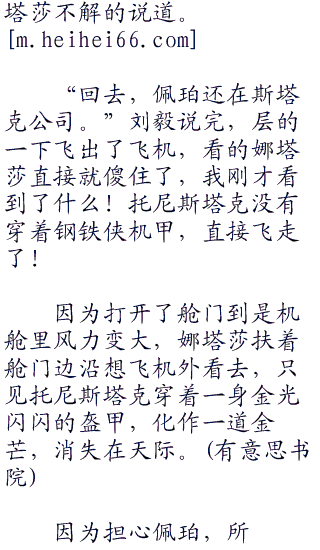 塔莎不解的说道。
[m.heihei66.com]
“回去，佩珀还在斯塔
克公司。”刘毅说完，层的
一下飞出了飞机，看的娜塔
莎直接就傻住了，我刚才看
到了什么！托尼斯塔克没有
穿着钢铁侠机甲，直接飞走
了！
因为打开了舱门到是机
舱里风力变大，娜塔莎扶着
舱门边沿想飞机外看去，只
见托尼斯塔克穿着一身金光
闪闪的盔甲，化作一道金
芒，消失在天际。(有意思书
院)
因为担心佩珀，所